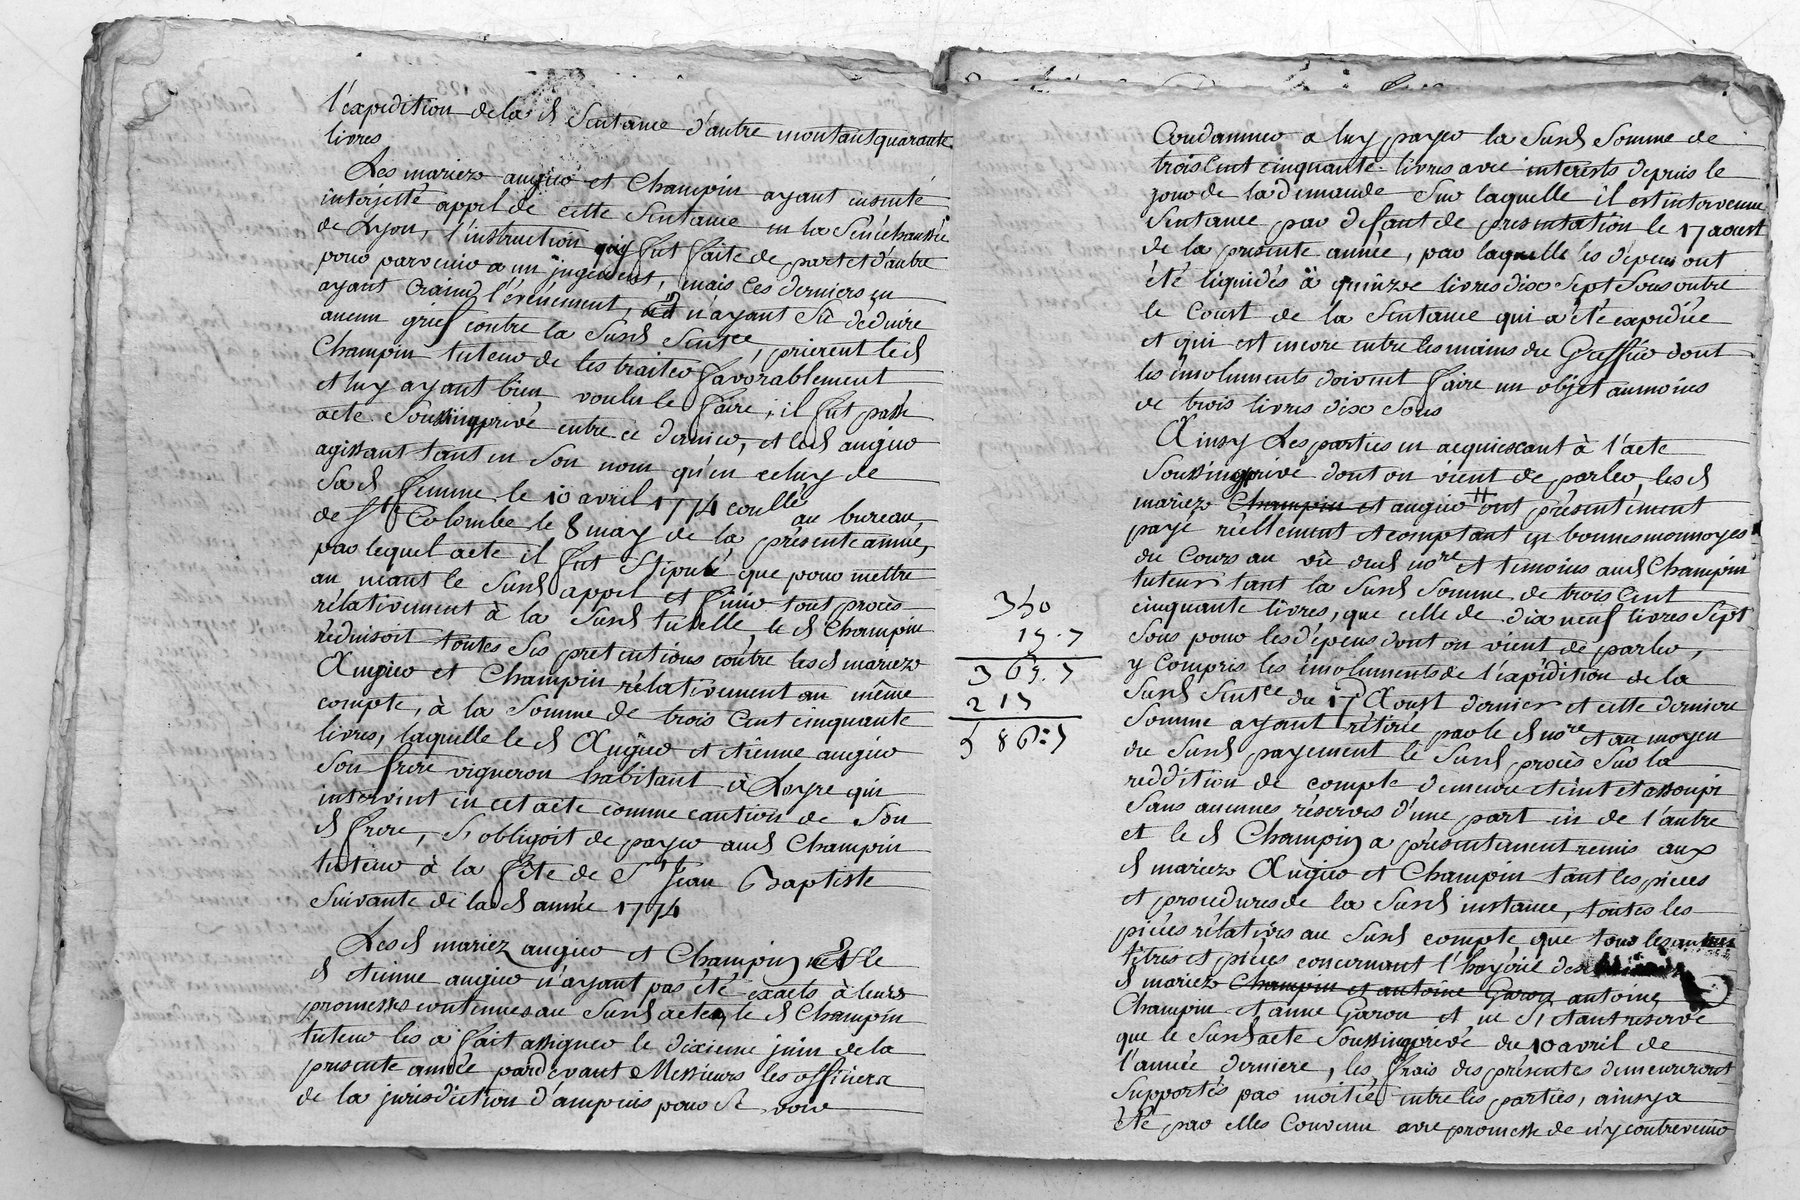 l'expédition de la d Sentance d'autre montant quarante
livres
Les mariez augier et Champin ayant ensuite
interjetté appel de cette Sentance en la Sénéchaussée
de Lyon, l'instruction fut faite de part et d'autre
pour parvenir a un jugement, mais ces derniers en
ayant craind l'événement, n'ayant Sû déduire
aucun grief contre la Susd Sentce, prierent le d
Champin tuteur de les traiter favorablement
et luy ayant bien voulu le faire, il fut passé
acte Soussingprivé entre ce dernier, et led augier
agissant tant en Son nom qu'en celuy de
Sa d femme le 10 avril 1774 conllé au bureau
de Ste Colombe le 8 may de la présente année,
par lequel acte il fut Stipulé que pour mettre
au néant le Susd appel et finir tout procès
rélativement à la Susd tutelle, le d Champin
réduisoit toutes Ses prétentions contre les d mariez
Augier et Champin rélativement au même
compte, à la Somme de trois Cent cinquante
livres, laquelle le d Augier et etienne augier
Son frere vigneron habitant à Loyre qui
intervint en cet acte comme caution de Son
d frere, S'obligoit de payer aud Champin
tuteur à la fête de St Jean Baptiste
Suivante de lad année 1774
Les d mariez augier et Champin et le
d etienne augier n'ayant pas été exacts à leurs
promesses contenues au Susd acte, le d Champin
tuteur les a fait assigner le dixieme juin de la
presente année pardevant Messieurs les officiers
de la jurisdiction d'ampuis pour Se voir
Condamner a luy payer la Susd Somme de
trois Cent cinquante livres avec interests depuis le
jour de la demande Sur laquelle il est intervenue
Sentance par defaut de présentation le 17 aoust
de la présente année, par laquelle les dépens ont
été liquidés à quinze livres dix Sept Sous outre
le Coust de la Sentance qui a été expédiée
et qui est encore entre les mains du Greffier dont
les émoluments doivent faire un objet aumoins
de trois livres dix Sous
Ainsy Les parties en acquiescant à l'acte
Soussingprivé dont on vient de parler, les d
mariez Champin et augier # ont présentement
payé réellement et comptant en bonnes monnoyes
du Cours au vû dud nore et temoins aud Champin
tuteur tant la Susd Somme de trois Cent
cinquante livres, que celle de dix neuf livres Sept
Sous pour les dépens dont on vient de parler,
y compris les émoluments de l'expédition de la
Susd Sentce du 17 Aoust dernier et cette derniere
Somme ayant rétirée par le d nore et au moyen
du Susd payement le Susd procès Sur la
reddition de compte demeure éteint et assoupi
Sans aucunes réserves d'une part ni de l'autre
et le d Champin a présentement remis aux
d mariez Augier et Champin tant les pieces
et procedures de la Susd instance, toutes les
piéces rélatives au Susd compte que tous les autres
titres et piéces concernant l'hoyrie des
d mariez Champin et antoine Garon antoine
Champin et anne Garon et ne S'étant reservé
que le Susd acte Soussingprivé du 10 avril de
l'année derniere, les frais des présentes demeureront
Supportés par moitié entre les parties, ainsy a
été par elles Convenu avec promesse de n'y contrevenir
350
19.7
369.7
217
586.7